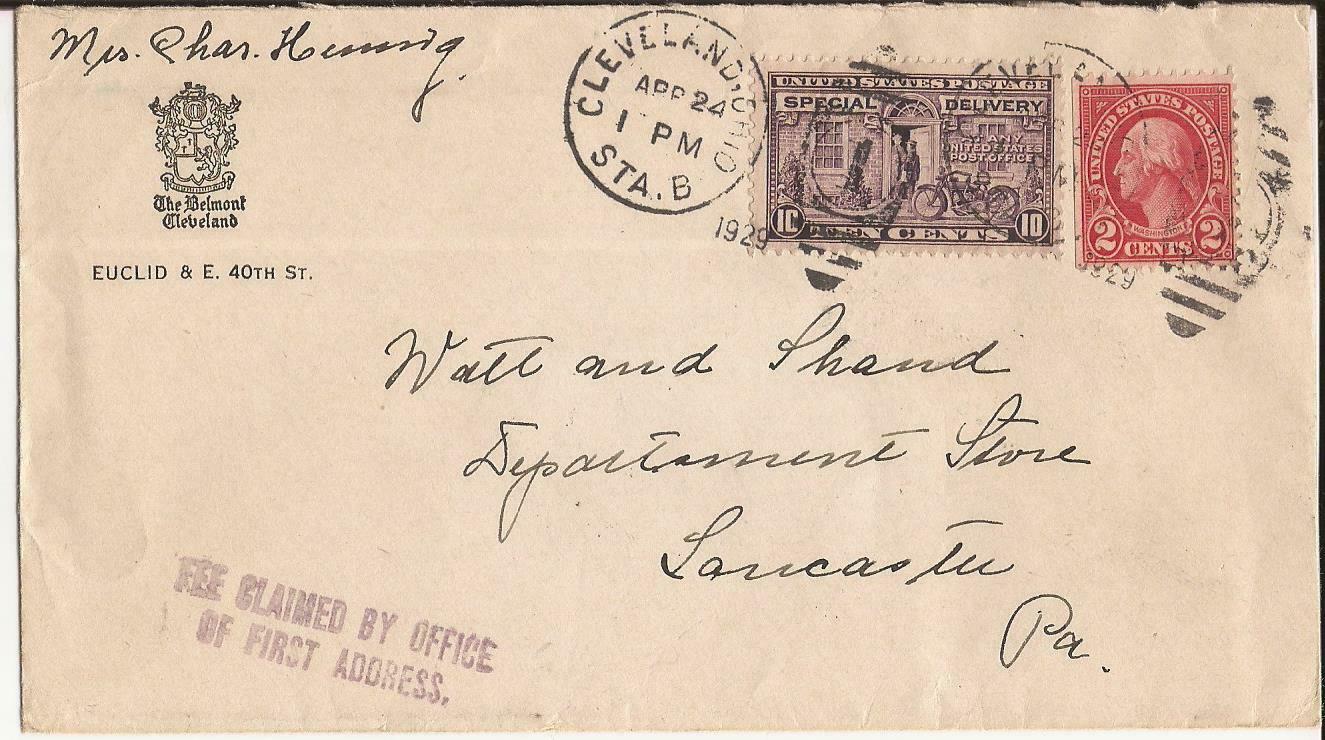 Mrs. Chas. Hennig.
The Belmont
Cleveland
EUCLID & E. 40TH ST.
CLEVELAND, OHIO
APR 24
1 PM
STA. B
1929
UNITED STATES POSTAGE
SPECIAL DELIVERY
AT ANY
UNITED STATES
POST OFFICE
10 TEN CENTS 10
UNITED STATES POSTAGE
WASHINGTON
2 CENTS 2
1929
Watt and Shand
Department Store
Lancaster
Pa.
FEE CLAIMED BY OFFICE
OF FIRST ADDRESS.